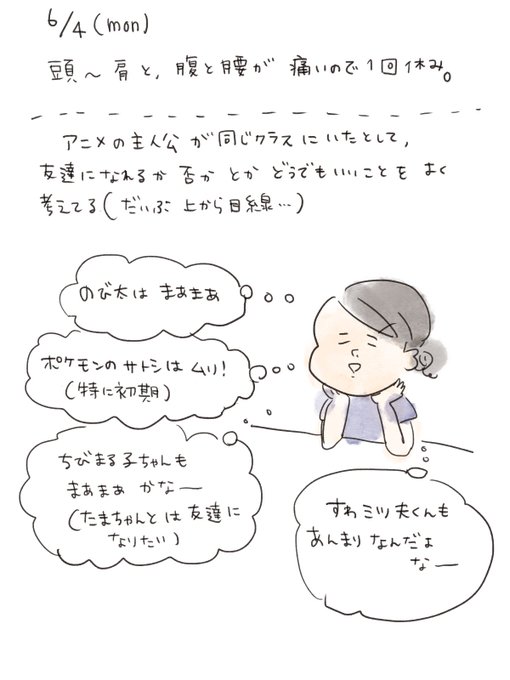 6/4(mon)
頭〜肩と,腹と腰が 痛いので1回休み。
アニメの主人公が同じクラスにいたとして,
友達になれるか否かとかどうでもいいことをよく
考えてる(だいぶ上から目線…)
のび太は まぁまぁ
ポケモンのサトシはムリ!
(特に初期)
ちびまる子ちゃんも
まぁまぁ かなー
(たまちゃんとは友達に
なりたい)
すわミツ夫くんも
あんまりなんだよ
なー